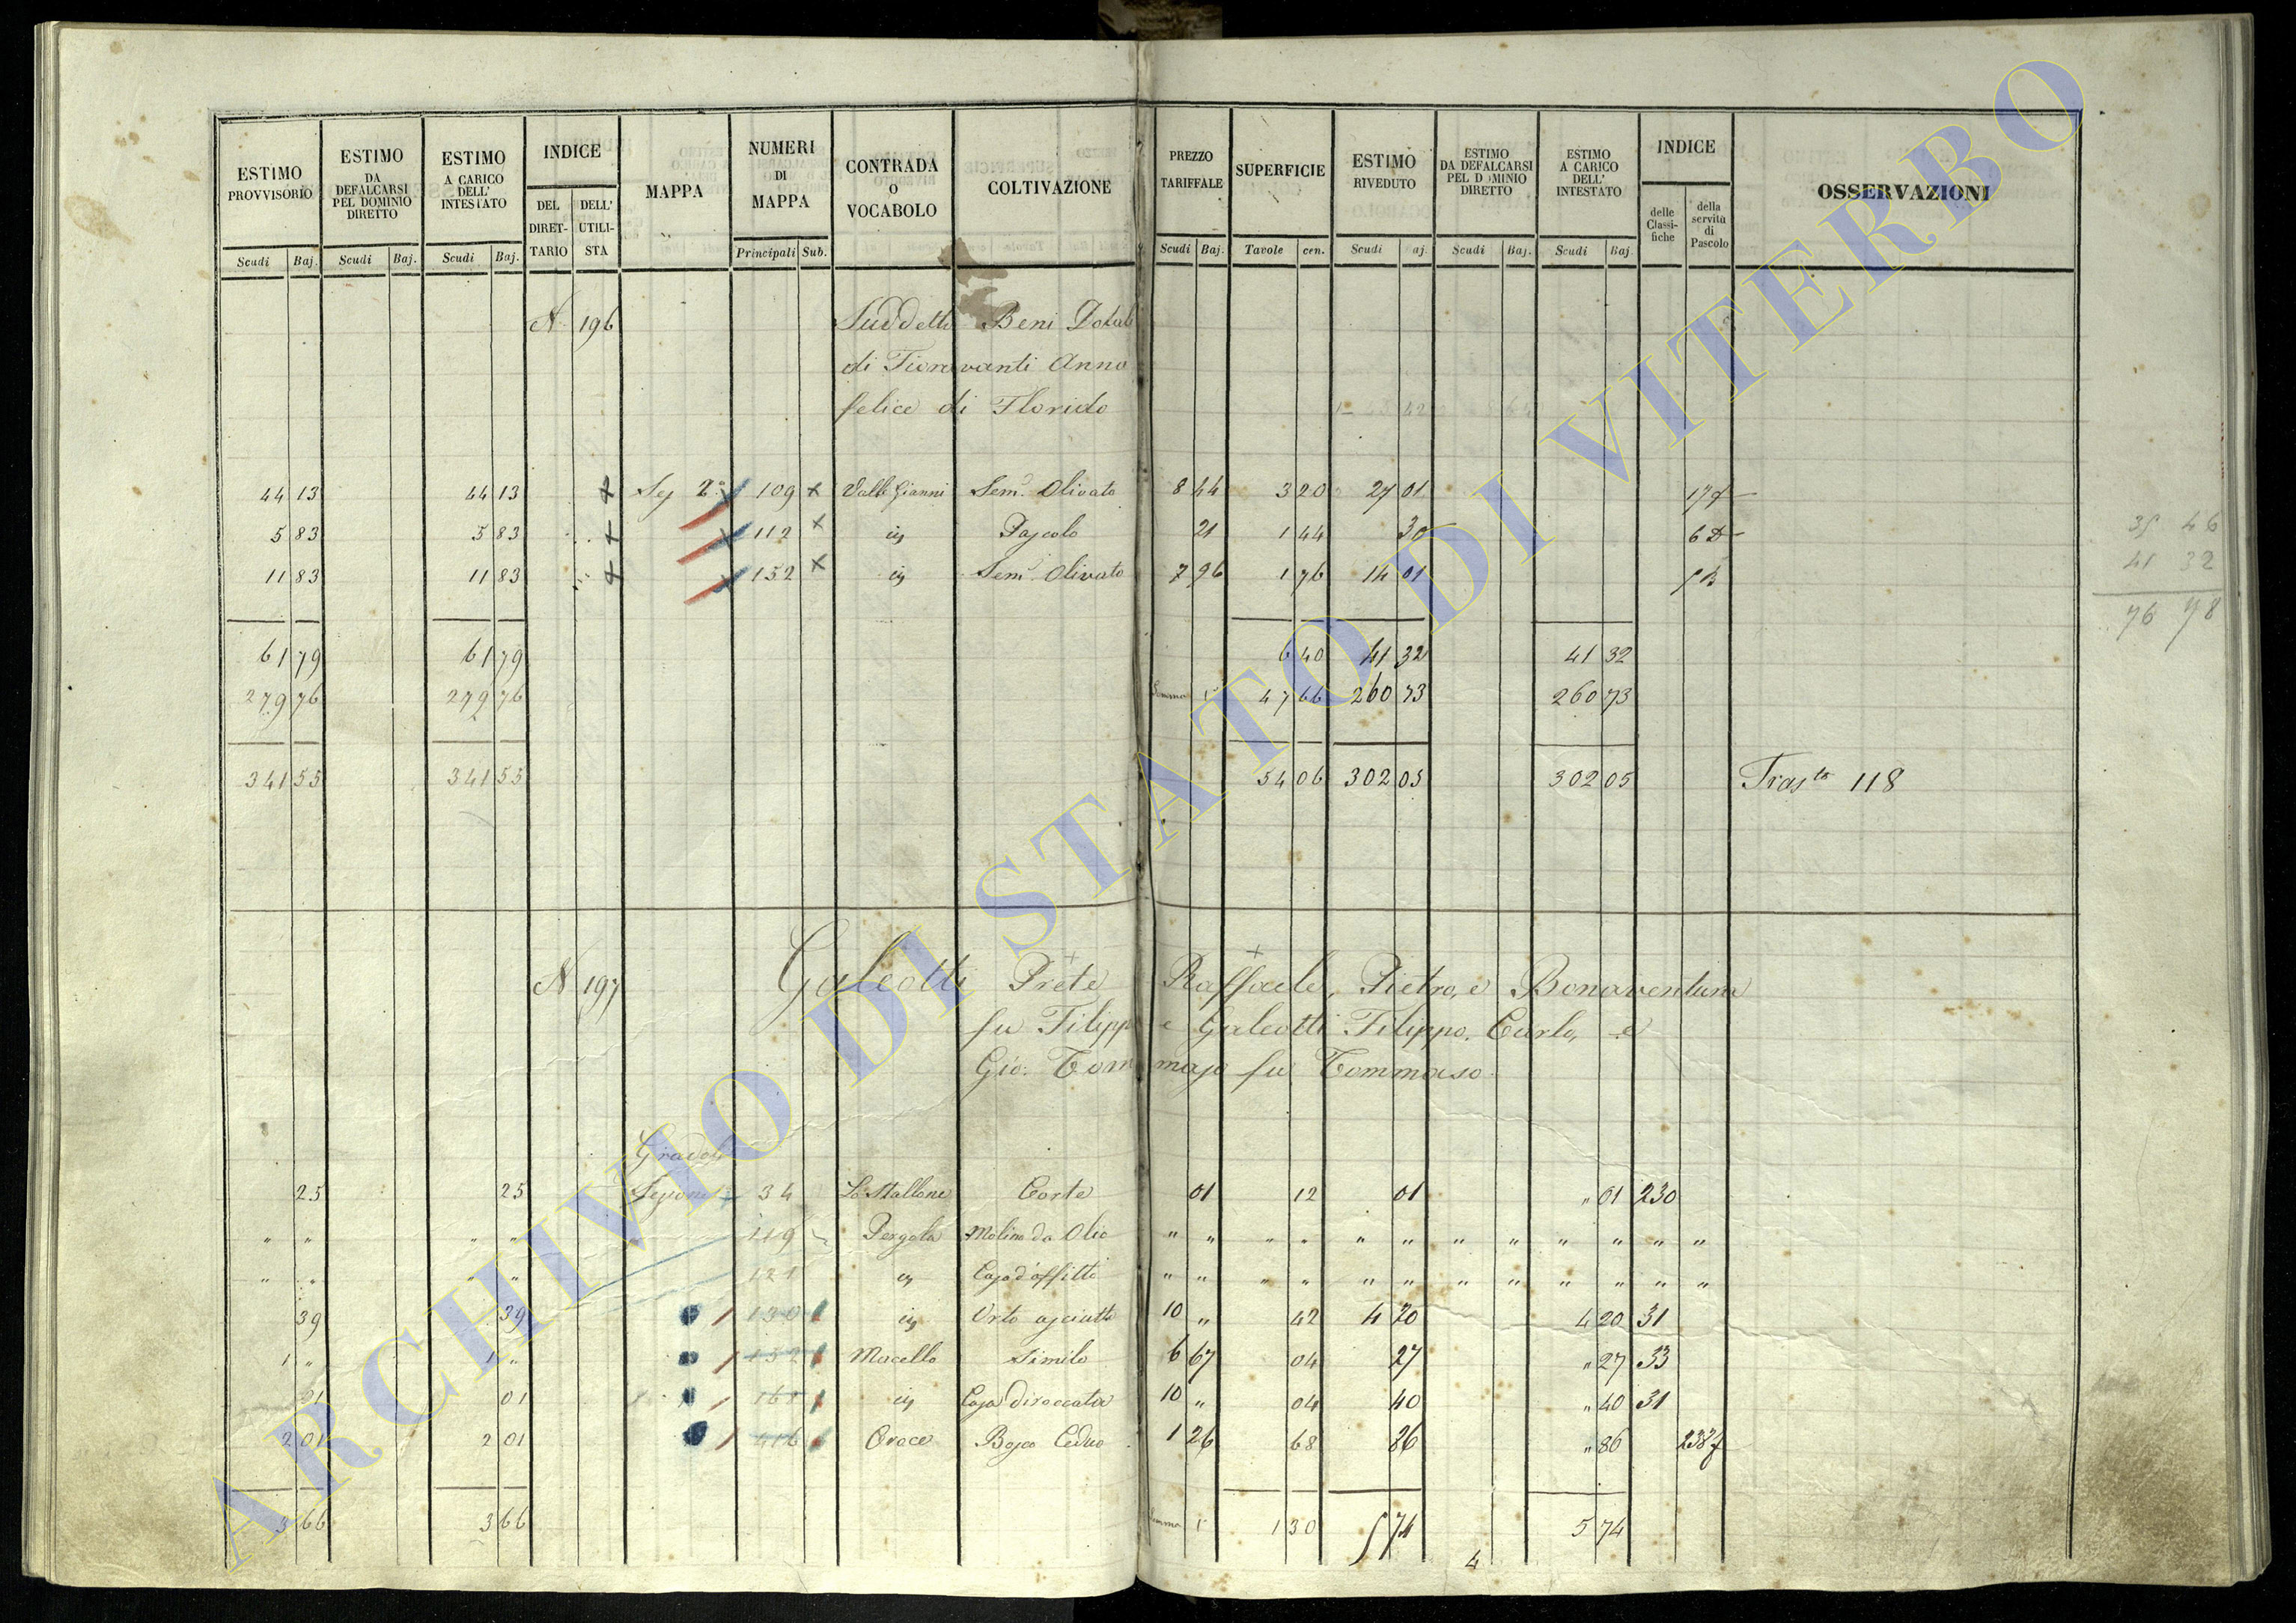 ESTIMO PROVVISORIO ESTIMO DA DEFALCARSI PEL DOMINIO DIRETTO ESTIMO A CARICO DELL' INTESTATO INDICE MAPPA NUMERI DI MAPPA CONTRADA O VOCABOLO COLTIVAZIONE PREZZO TARIFFALE SUPERFICIE ESTIMO RIVEDUTO ESTIMO DA DEFALCARSI PEL DOMINIO DIRETTO ESTIMO A CARICO DELL' INTESTATO INDICE OSSERVAZIONI
DEL DIRET-TARIO DELL' UTILI-STA delle Classi-fiche della servitù di Pascolo
Scudi Baj. Scudi Baj. Scudi Baj. Principali Sub. Scudi Baj. Tavole cen. Scudi aj. Scudi Baj. Scudi Baj.
N. 196 Suddetto Beni Dotali
di Fioravanti Anna
felice di Florido
44 13 44 13 + Sez 2ª 109 + Valle Gianni Sem.º Olivato 8 44 3 20 27 01 17
5 83 5 83 + 112 + id Pascolo 21 1 44 30 6 D
11 83 11 83 + 152 + id Sem.º Olivato 7 96 1 76 14 01
61 79 61 79 6 40 41 32 41 32
279 76 279 76 Somma 47 66 260 73 260 73
341 55 341 55 54 06 302 05 302 05 Tras.to 118
35 46
41 32
76 78
N 197 Galeotti Prete Raffaele, Pietro, e Bonaventura
fu Filippo e Galeotti Filippo, Carlo, e
Gio: Tommaso fu Tommaso
Gradoli
25 25 Sezione 34 Lo Stallone Corte 01 12 01 " 01 230
" " " " 119 Pergola Molino da Olio " " " " " " " " " " " "
" " " " 121 id Casa d'affitto " " " " " " " " " " " "
39 39 130 id Orto asciutto 10 " 42 4 20 4 20 31
1 " 1 " 132 Macello Simile 6 67 04 27 " 27 33
01 01 161 id Casa diroccata 10 " 04 40 " 40 31
2 01 2 01 416 Croce Bosco Ceduo 1 26 68 86 " 86 238
3 66 3 66 Somma 1 30 5 74 5 74
4
ARCHIVIO DI STATO DI VITERBO